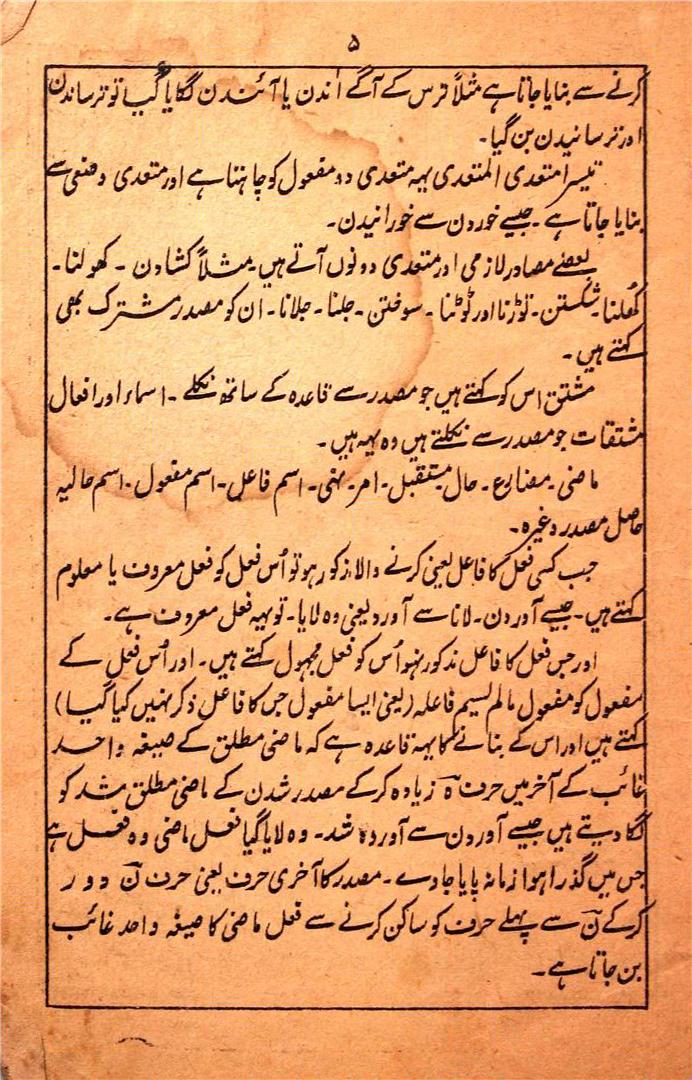 ۵
کرنے سے بنایا جاتا ہے مثلاً ترس کے آگے اندن یا آئندن لگایا گیا تو ترساندن
اور ترسانیدن بن گیا۔
تیسرا متعدی المتعدی یہہ متعدی دو مفعول کو چاہتا ہے اور متعدی وضعی سے
بنایا جاتا ہے۔ جیسے خوردن سے خورانیدن۔
بعضے مصادر لازمی اور متعدی دونوں آتے ہیں۔ مثلاً کشادن ۔ کھولنا۔
کھُلنا۔ شکستن۔ توڑنا اور ٹوٹنا ۔ سوختن۔ جلنا ۔ جلانا۔ ان کو مصدر مشترک بھی
کہتے ہیں۔
مشتق اس کو کہتے ہیں جو مصدر سے قاعدہ کے ساتھ نکلے ۔ اسماء اور افعال
مشتقات جو مصدر سے نکلتے ہیں وہ یہہ ہیں۔
ماضی۔ مضارع۔ حال۔ مستقبل۔ امر۔ نہی۔ اسم فاعل۔ اسم مفعول۔ اسم حالیہ
حاصل مصدر وغیرہ۔
جب کسی فعل کا فاعل یعنی کرنے والا مذکور ہو تو اُس فعل کو فعل معروف یا معلوم
کہتے ہیں۔ جیسے آوردن۔ لانا سے آورد یعنی وہ لایا۔ تو یہہ فعل معروف ہے۔
اور جس فعل کا فاعل مذکور نہو اُس کو فعل مجہول کہتے ہیں۔ اور اُس فعل کے
مفعول کو مفعول مالم یسم فاعلہ (یعنی ایسا مفعول جس کا فاعل ذکر نہیں کیا گیا)
کہتے ہیں اور اس کے بنانے کا یہہ قاعدہ ہے کہ ماضی مطلق کے صیغہ واحد
غائب کے آخر میں حرف ہ زیادہ کرکے مصدر شدن کے ماضی مطلق شد کو
لگا دیتے ہیں جیسے آوردن سے آوردہ شد۔ وہ لایا گیا فعل ماضی وہ فعل ہے
جس میں گذرا ہوا زمانہ پایا جاوے۔ مصدر کا آخری حرف یعنی حرف ن دور
کرکے ن سے پہلے حرف کو ساکن کرنے سے فعل ماضی کا صیغہ واحد غائب
بن جاتا ہے۔